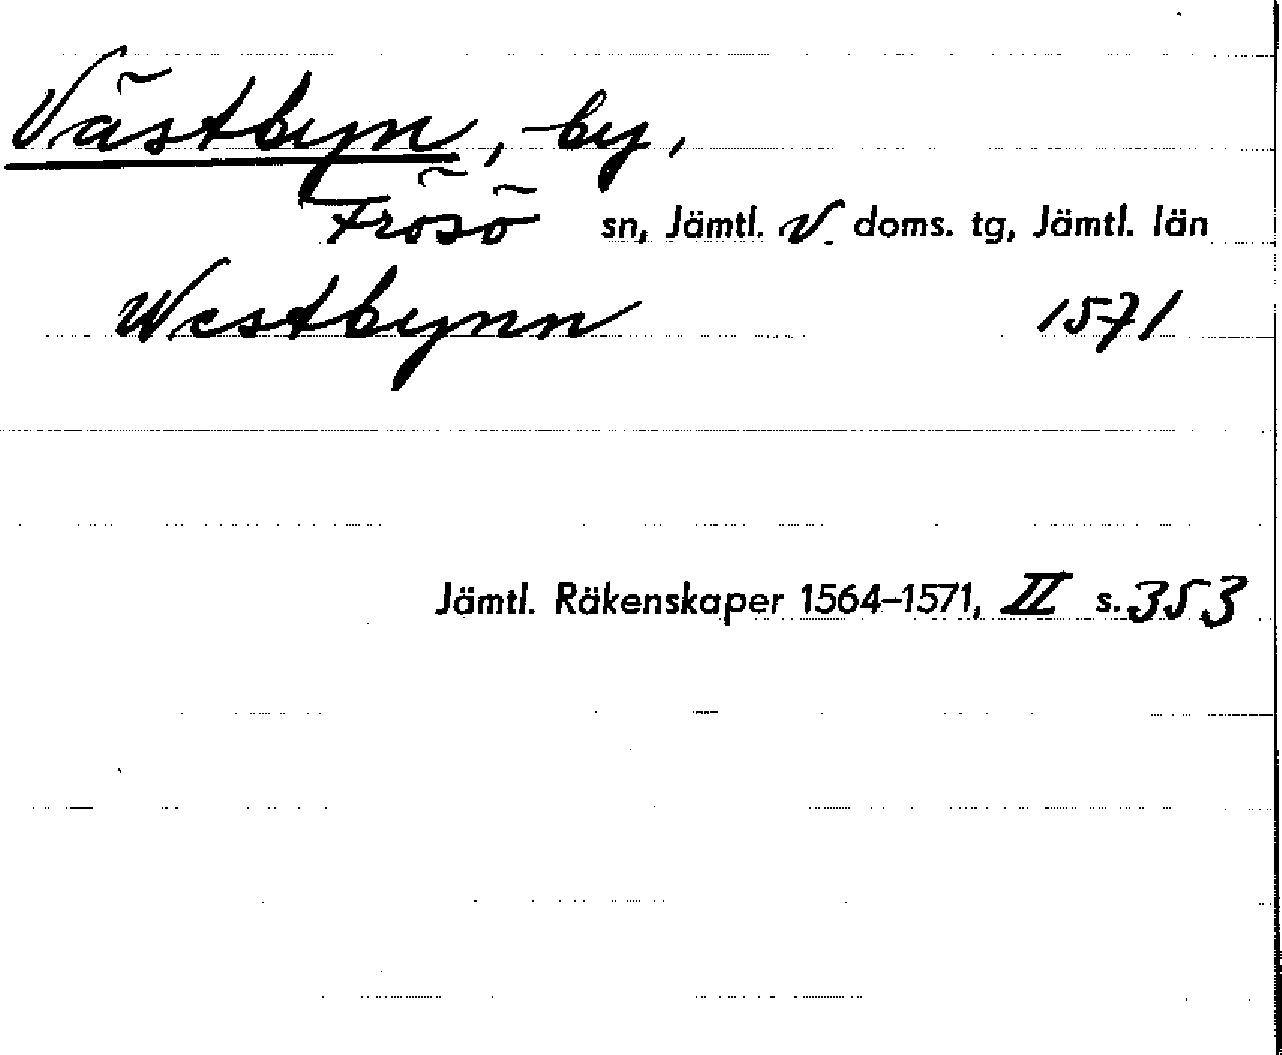 Västbyn, by,
Frösö sn, Jämtl. V. doms. tg, Jämtl. län
Westbynn 1571
Jämtl. Räkenskaper 1564–1571, II s. 353